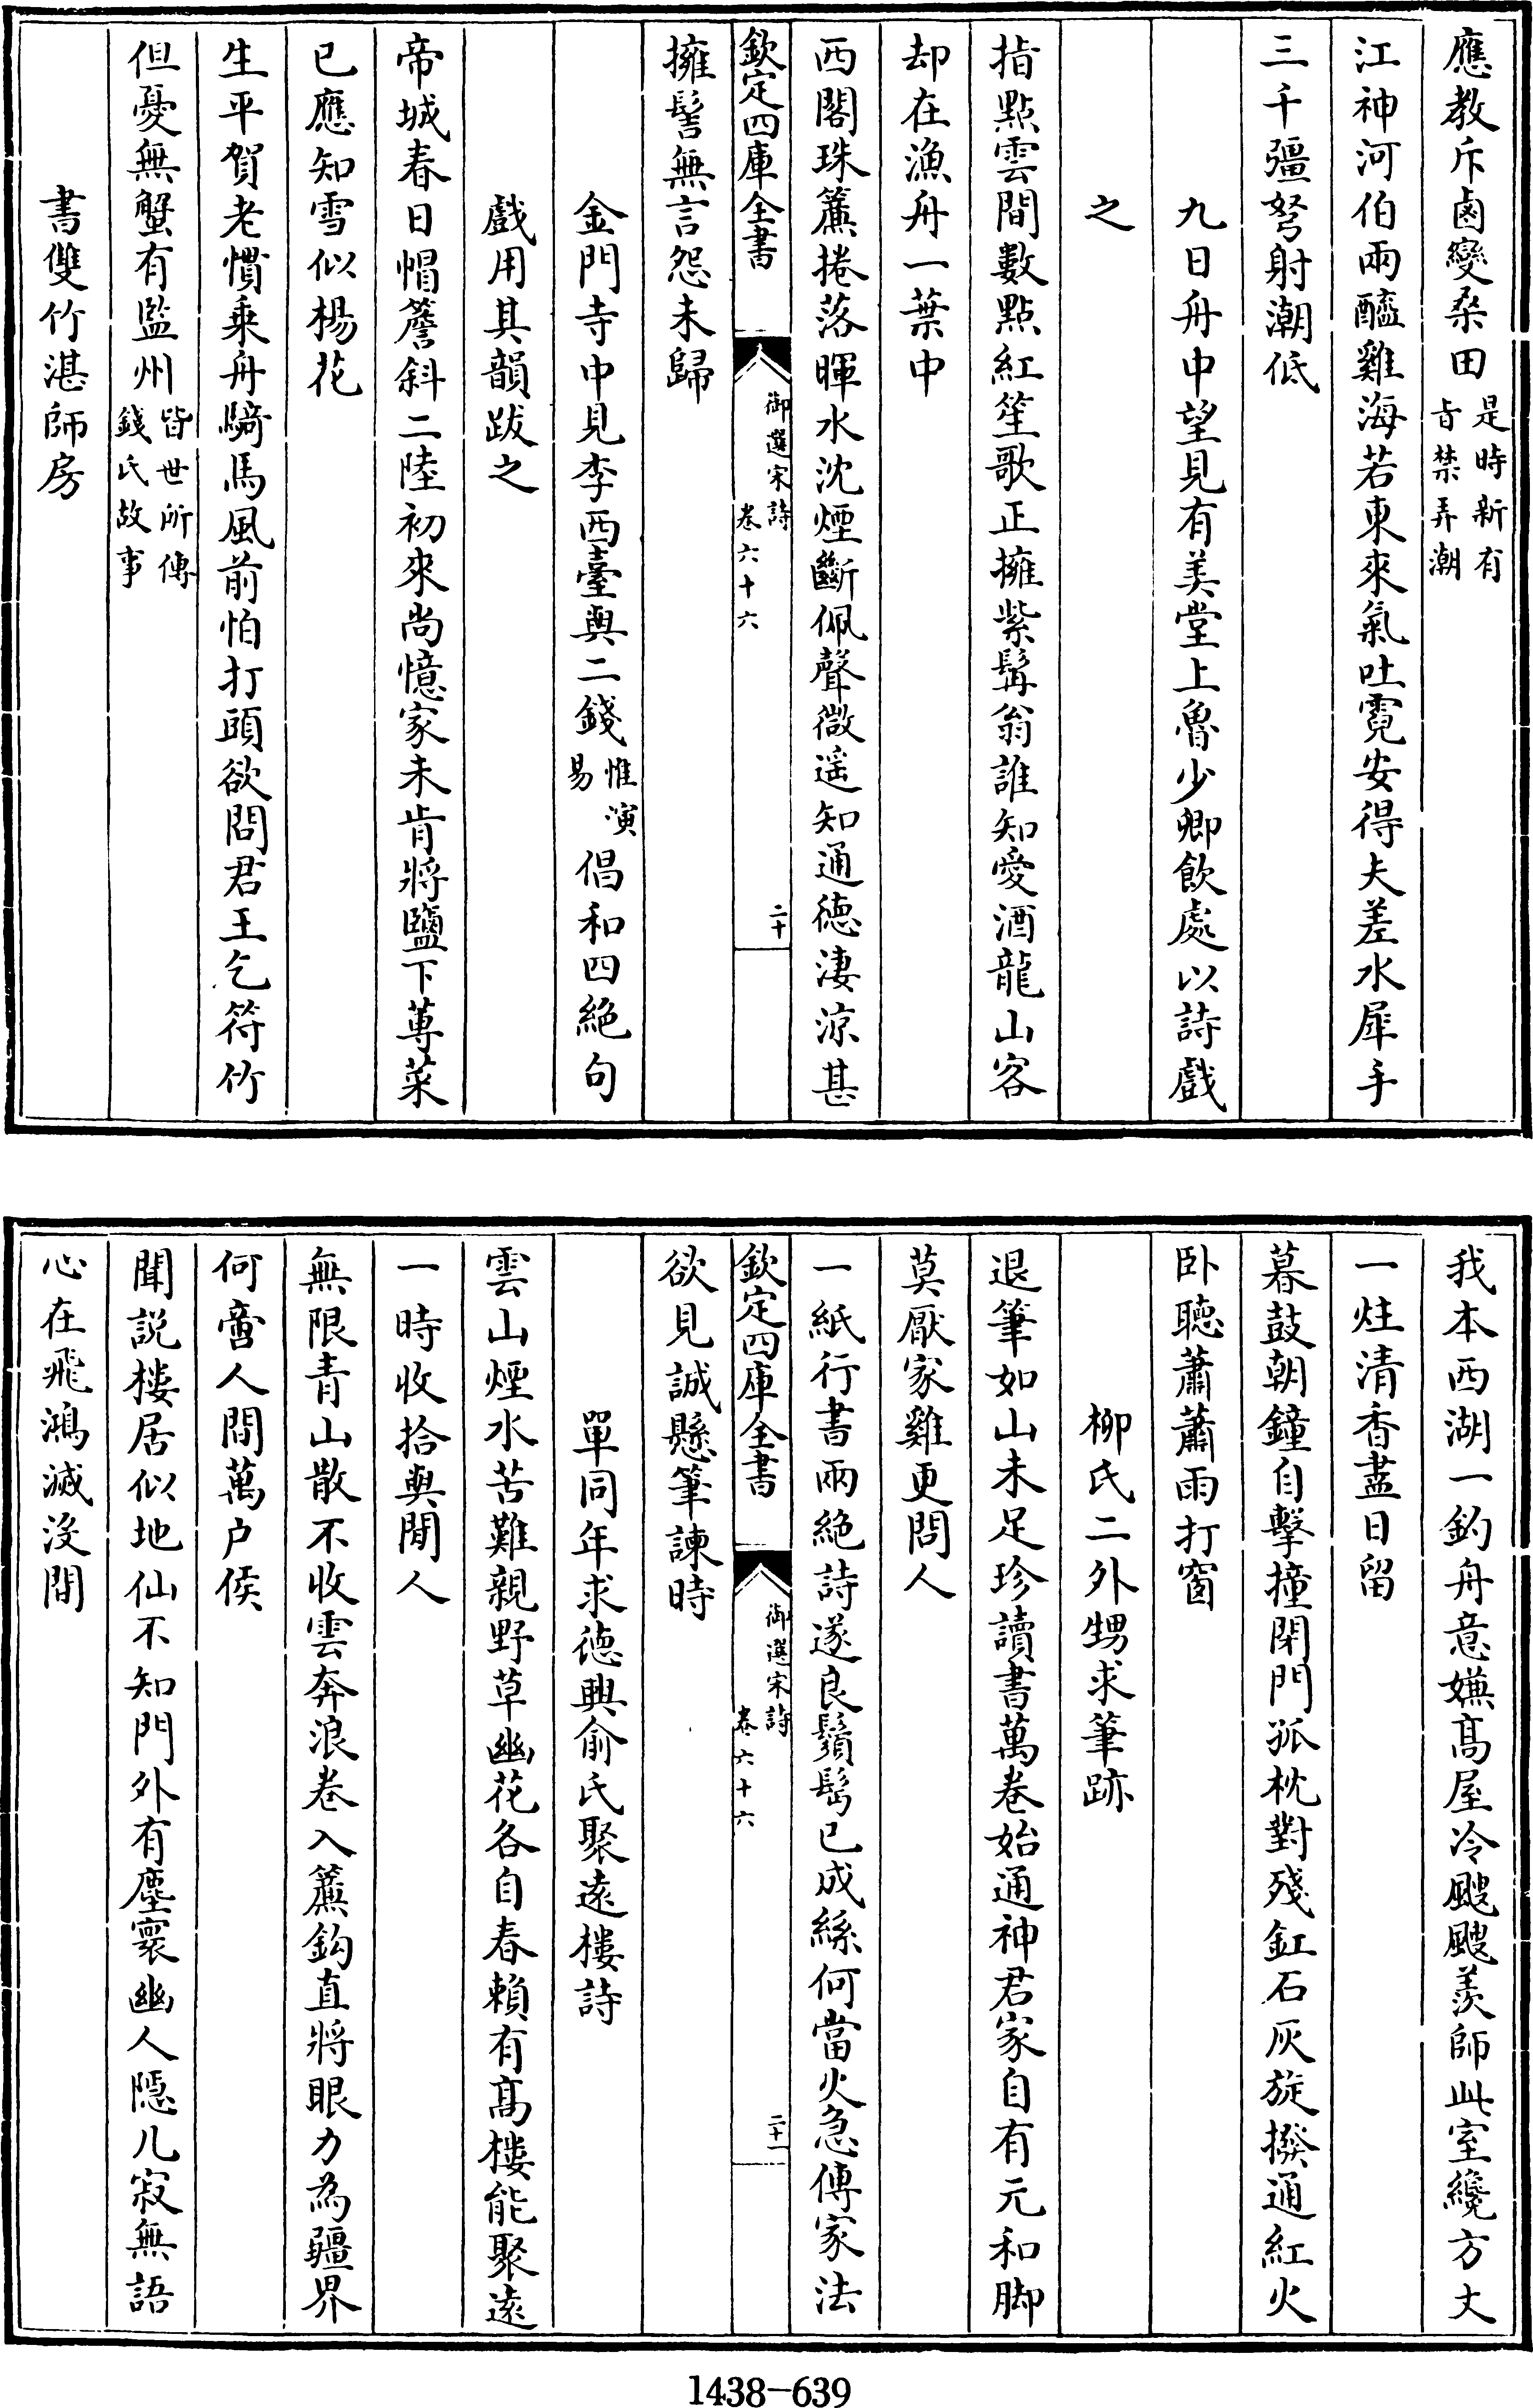 應教斥鹵變桑田是時新有旨禁弄潮
江神河伯兩醯雞海若東來氣吐霓安得夫差水犀手
三千彊弩射潮低
九日舟中望見有美堂上魯少卿飲處以詩戲
之
指點雲間數點紅笙歌正擁紫髯翁誰知愛酒龍山客
却在漁舟一葉中
西閣珠簾捲落暉水沈煙斷佩聲微遥知通徳淒涼甚
欽定四庫全書 御選宋詩卷六十六 二十
擁髻無言怨未歸
金門寺中見李西臺與二錢惟演易倡和四絶句
戲用其韻跋之
帝城春日帽簷斜二陸初來尚憶家未肯將鹽下蓴菜
已應知雪似楊花
生平賀老慣乗舟騎馬風前怕打頭欲問君王乞符竹
但憂無蟹有監州皆世所傳錢氏故事
書雙竹湛師房
我本西湖一釣舟意嫌髙屋冷颼颼羨師此室纔方丈
一炷清香盡日留
暮鼓朝鐘自擊撞閉門孤枕對殘釭石灰旋撥通紅火
卧聽蕭蕭雨打窗
柳氏二外甥求筆跡
退筆如山未足珍讀書萬卷始通神君家自有元和脚
莫厭家雞更問人
一紙行書兩絶詩遂良鬚髩已成絲何當火急傳家法
欽定四庫全書 御選宋詩卷六十六 二十一
欲見誠懸筆諫時
單同年求徳興俞氏聚逺樓詩
雲山煙水苦難親野草幽花各自春賴有髙樓能聚逺
一時收拾與閒人
無限青山散不收雲奔浪卷入簾鈎直將眼力為疆界
何啻人間萬户侯
聞説樓居似地仙不知門外有塵寰幽人隱几寂無語
心在飛鴻滅没間
1438-639